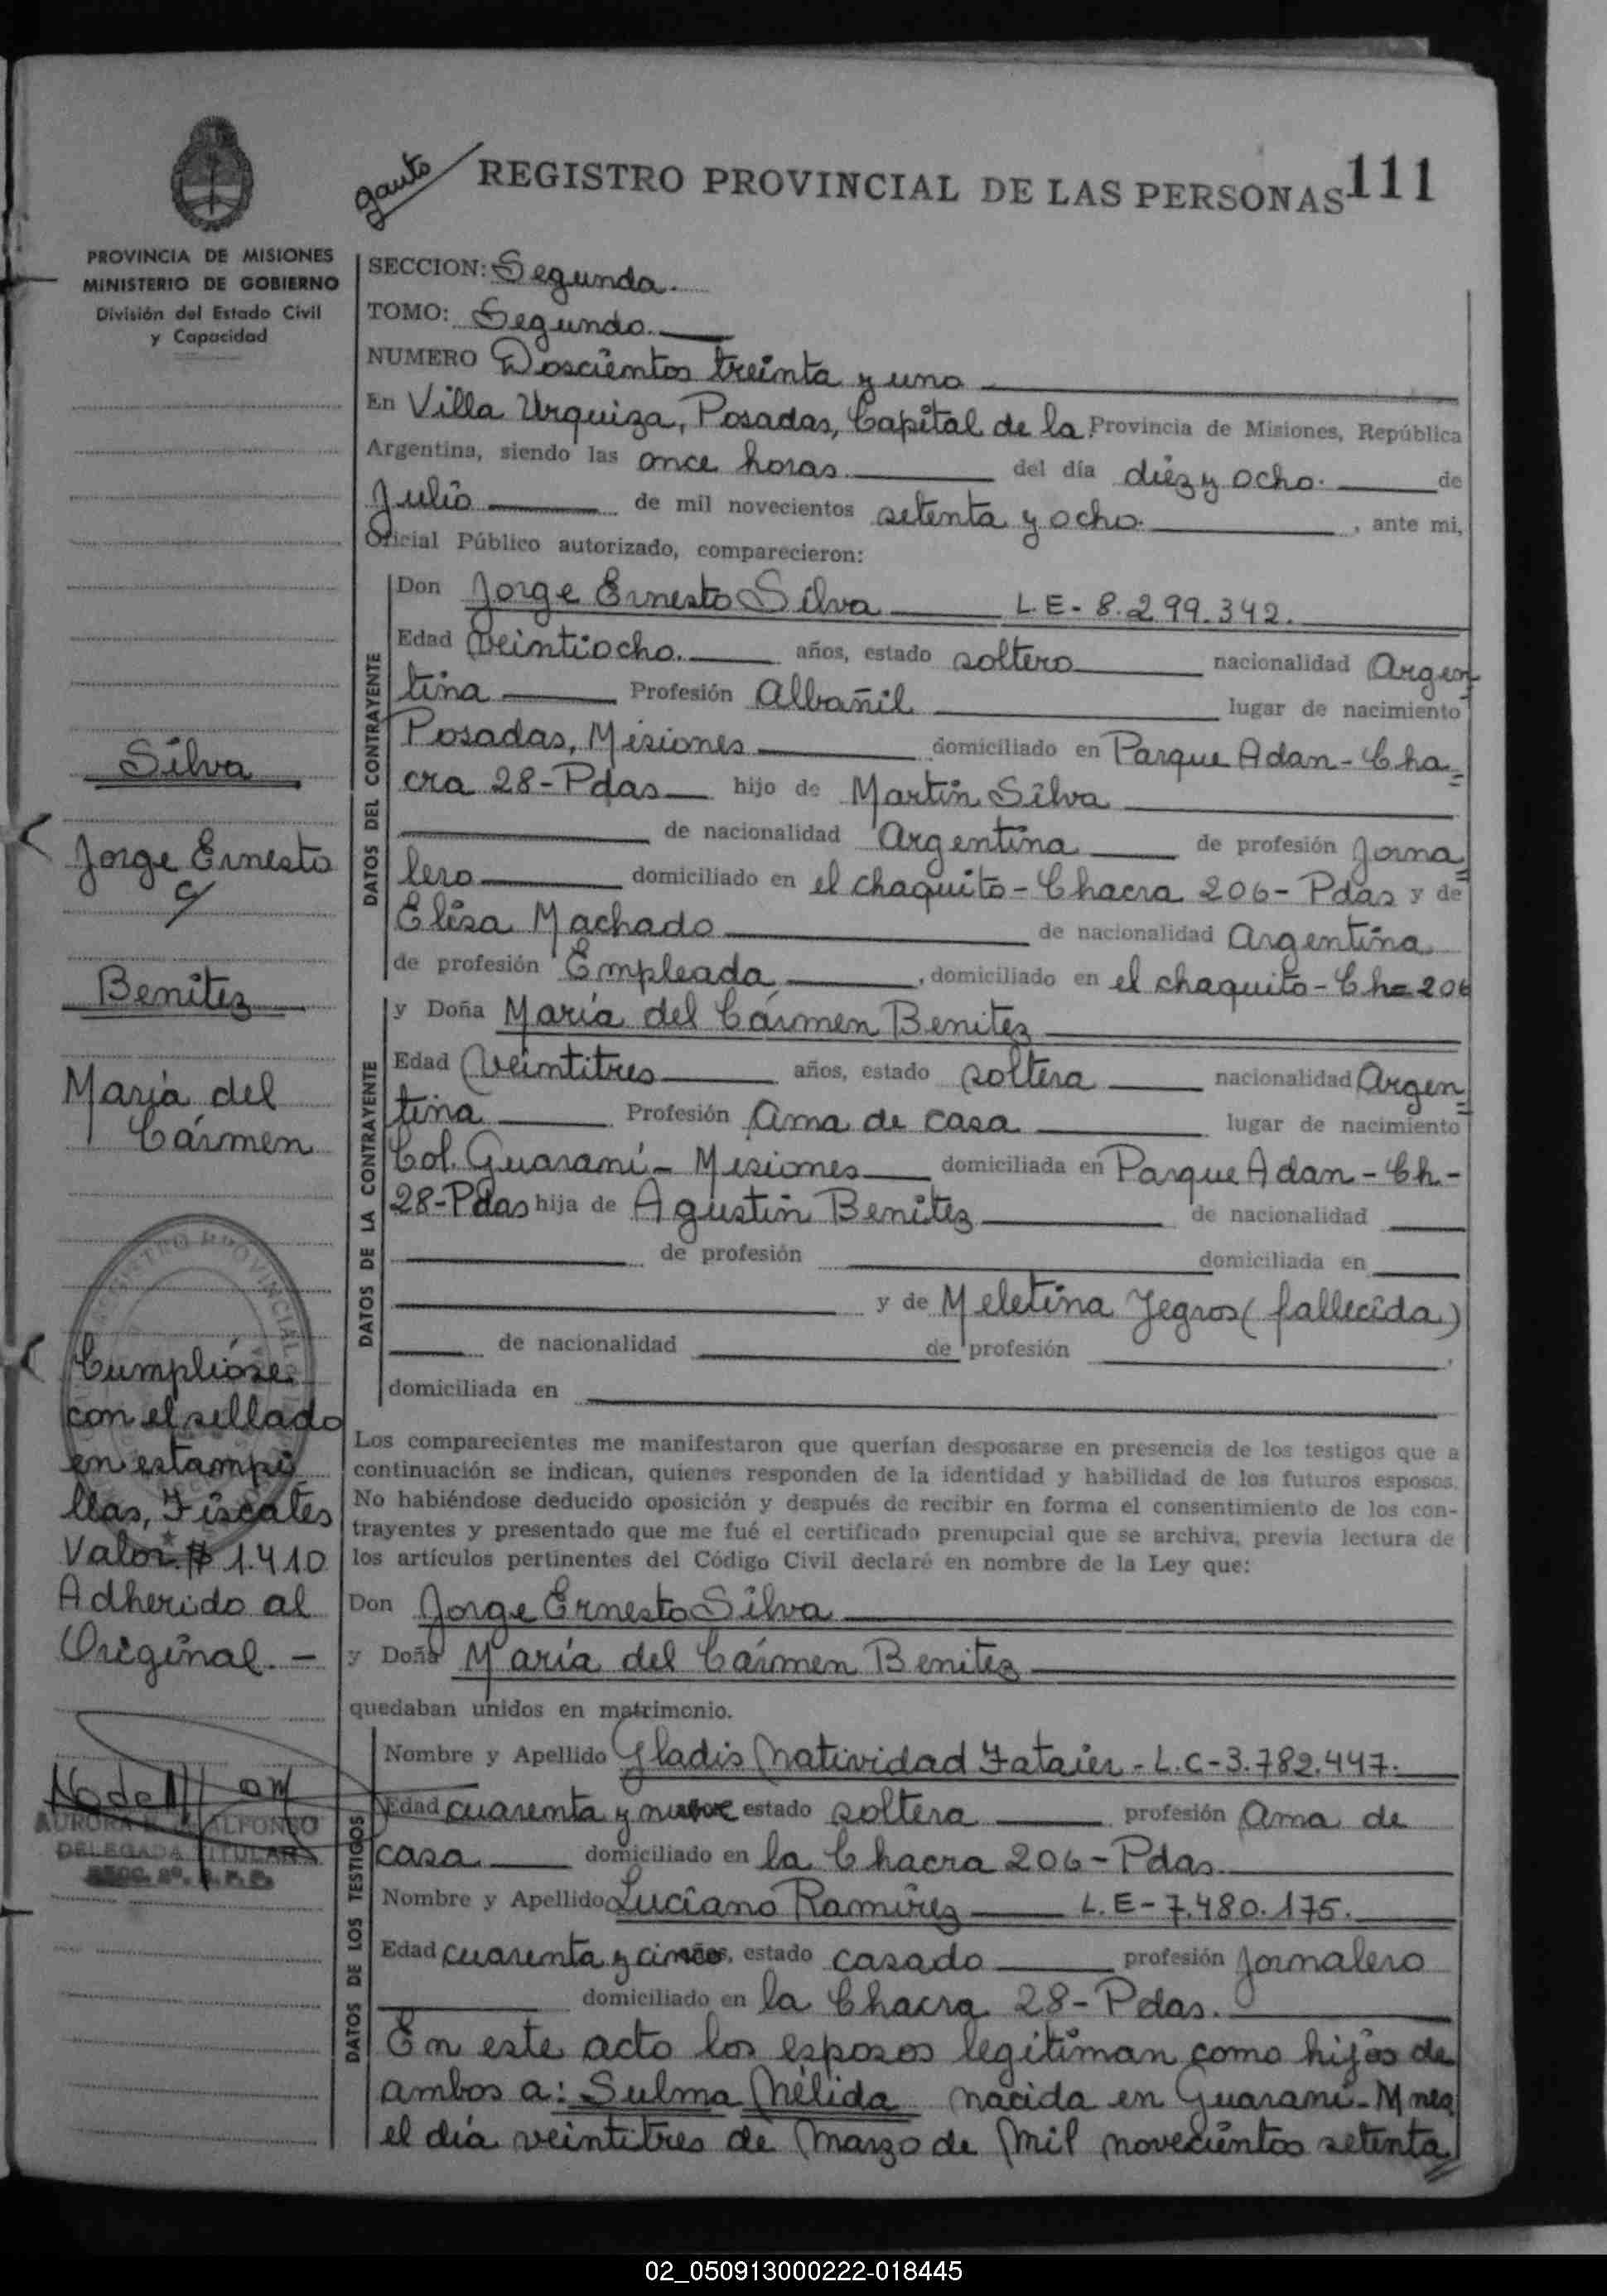 gauto
REGISTRO PROVINCIAL DE LAS PERSONAS 111
PROVINCIA DE MISIONES
MINISTERIO DE GOBIERNO
División del Estado Civil
y Capacidad
SECCION: Segunda.
TOMO: Segundo.
NUMERO Doscientos treinta y uno
En Villa Urquiza, Posadas, Capital de la Provincia de Misiones, República
Argentina, siendo las once horas. del día diez y ocho. de
Julio de mil novecientos setenta y ocho. , ante mi,
Oficial Público autorizado, comparecieron:
DATOS DEL CONTRAYENTE
Don Jorge Ernesto Silva L.E- 8.299.342.
Edad veintiocho. años, estado soltero nacionalidad Argen
tina Profesión Albañil lugar de nacimiento
Posadas, Misiones domiciliado en Parque Adan - Cha=
cra 28-Pdas hijo de Martin Silva
de nacionalidad Argentina de profesión Jorna=
lero domiciliado en el chaquito - Chacra 206- Pdas y de
Elisa Machado de nacionalidad Argentina
de profesión Empleada , domiciliado en el chaquito - Ch= 206
DATOS DE LA CONTRAYENTE
y Doña María del Cármen Benitez
Edad Veintitres años, estado soltera nacionalidad Argen=
tina Profesión Ama de casa lugar de nacimiento
Col. Guaraní - Misiones domiciliada en Parque Adan - Ch -
28-Pdas hija de Agustin Benitez de nacionalidad
de profesión domiciliada en
y de Meletina Yegros (fallecida)
de nacionalidad de profesión ,
domiciliada en
Los comparecientes me manifestaron que querían desposarse en presencia de los testigos que a
continuación se indican, quienes responden de la identidad y habilidad de los futuros esposos.
No habiéndose deducido oposición y después de recibir en forma el consentimiento de los con-
trayentes y presentado que me fué el certificado prenupcial que se archiva, previa lectura de
los artículos pertinentes del Código Civil declaré en nombre de la Ley que:
Don Jorge Ernesto Silva
y Doña María del Cármen Benitez
quedaban unidos en matrimonio.
DATOS DE LOS TESTIGOS
Nombre y Apellido Gladis Natividad Fataier - L.C-3.782.447.
Edad cuarenta y nueve estado soltera profesión Ama de
casa domiciliado en la Chacra 206-Pdas.
Nombre y Apellido Luciano Ramirez L.E-7.480.175.
Edad cuarenta y cinco años, estado casado profesión Jornalero
domiciliado en la Chacra 28- Pdas.
En este acto los esposos legitiman como hijos de
ambos a: Sulma Nélida nacida en Guaraní-Mnes
el día veintitres de Marzo de Mil novecientos setenta
Silva
Jorge Ernesto
c/
Benitez
María del
Cármen
Cumplióse
con el sellado
en estampi
llas, Fiscales
Valor $ 1.410
Adherido al
Original. -
ALFONSO
DELEGADA TITULAR
02_050913000222-018445